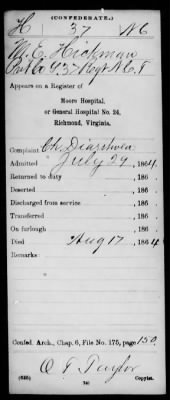 (CONFEDERATE.)
H 37 N C
M. E. Hickman
Pvt Co G, 37 Regt N.C.T
Appears on a Register of
Moore Hospital,
or General Hospital No. 24,
Richmond, Virginia.
Complaint Ch. Diarrhoea
Admitted July 29, 1864.
Returned to duty , 186 .
Deserted , 186 .
Discharged from service , 186 .
Transferred , 186 .
On furlough , 186 .
Died Aug 17, 1864
Remarks:
Confed. Arch., Chap. 6, File No. 175, page 150
O. T. Taylor
(635) Copyist.